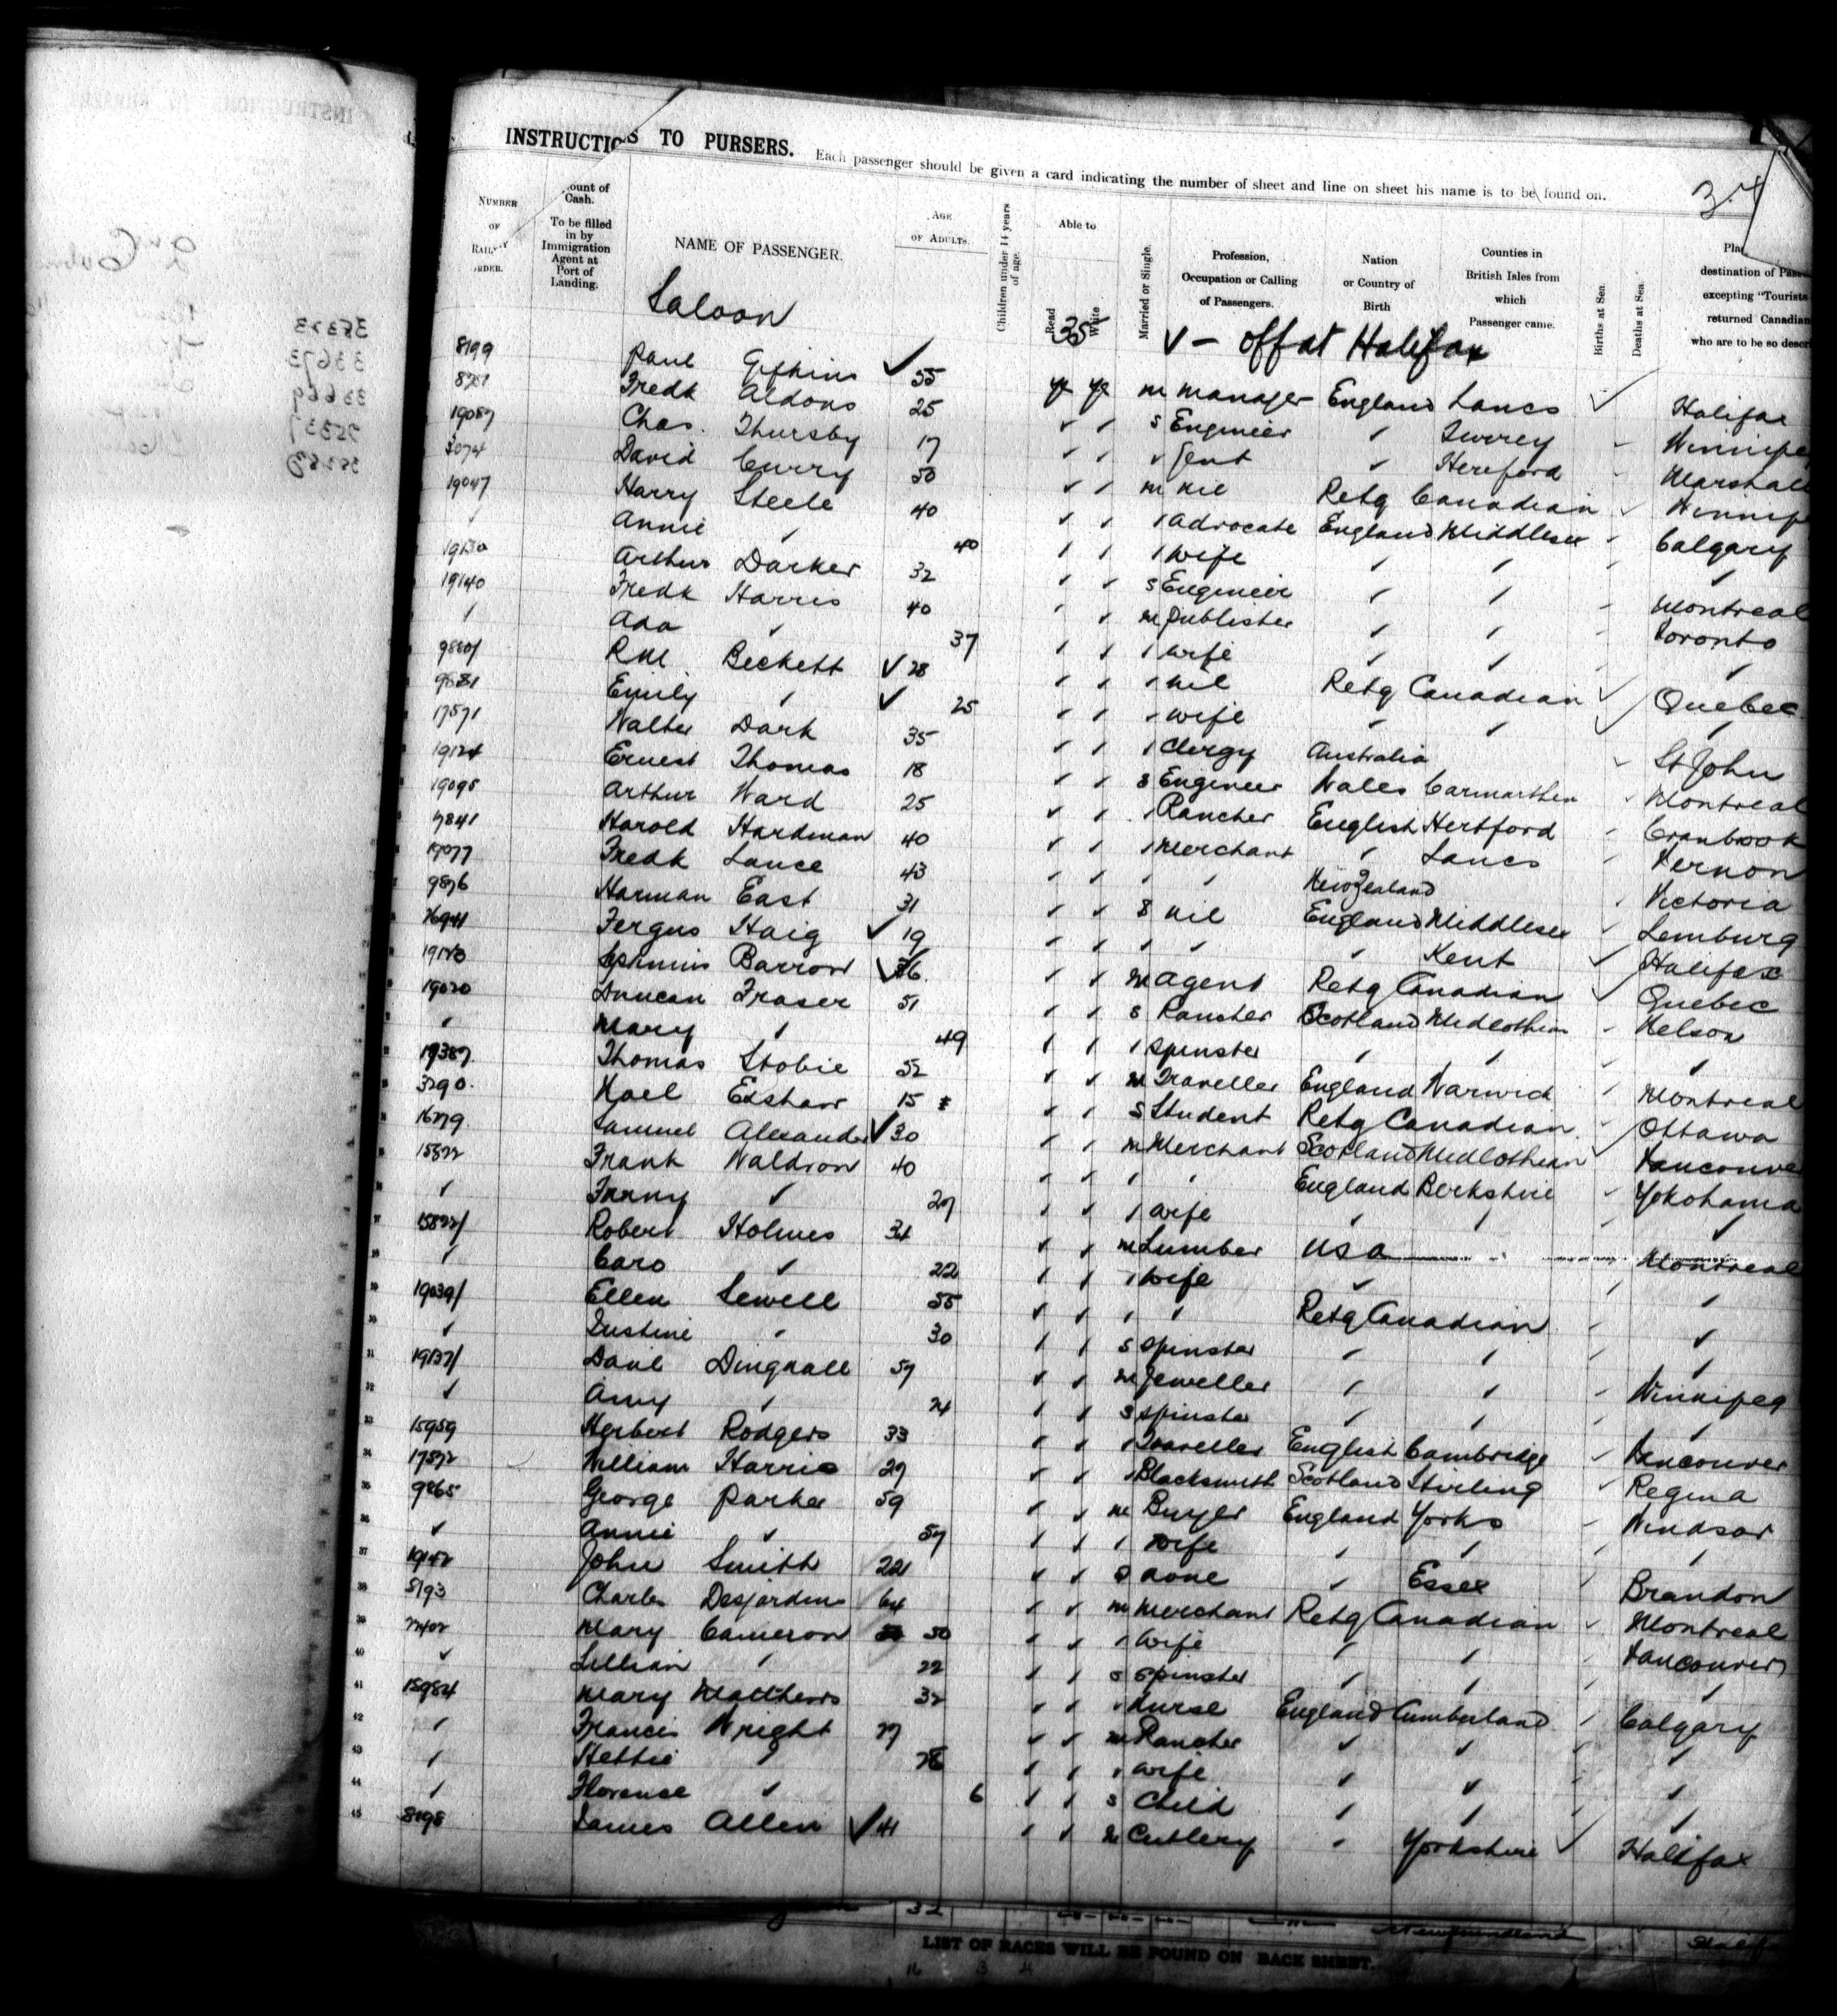 INSTRUCTIONS TO PURSERS. Each passenger should be given a card indicating the number of sheet and line on sheet his name is to be found on.
NUMBER OF RAILWAY ORDER.
ount of Cash. To be filled in by Immigration Agent at Port of Landing.
NAME OF PASSENGER.
AGE OF ADULTS.
Children under 14 years of age.
Able to Read Write
Married or Single.
Profession, Occupation or Calling of Passengers.
Nation or Country of Birth
Counties in British Isles from which Passenger came.
Births at Sea.
Deaths at Sea.
destination of Pass
excepting "Tourists
returned Canadian
who are to be so descri
Saloon
35
V - off at Halifax
8199 Paul ✓ 55 ye ye m manager England Lancs ✓ Halifax
Fredk Aldons 25 ✓ ✓ s Engineer " Surrey Winnipe
19087 Chas. Thursby 17 ✓ ✓ " Gent " Hereford Marshall
3074 David Curry 50 ✓ ✓ m nil Retg Canadian Winnip
19047 Harry Steele 40 ✓ ✓ " Advocate England Middlesex Calgary
" Annie " 40 " " " wife " " "
Arthur Darker 32 ✓ ✓ s Engineer " " Montreal
19140 Fredk Harris 40 " " m Publisher " " Toronto
" Ada " 37 " " " wife " " "
Beckett ✓ 28 " " " nil Retg Canadian ✓ Quebec
9881 Emily " ✓ 25 " " " wife " " ✓ "
17571 Walter Dark 35 " " " Clergy Australia St John
19124 Ernest Thomas 18 " " s Engineer Wales Carmarthen Montreal
19095 Arthur Ward 25 " " " Rancher English Hertford Cranbrook
Harold Hardman 40 " " " Merchant " Lancs Vernon
19077 Fredk Lance 43 " " " " New Zealand Victoria
9876 Harman East 31 " " s nil England Middlesex Lemburg
Fergus Haig ✓ 19 " " " " " Kent ✓ Halifax
Barron ✓ 36 " " m Agent Retg Canadian ✓ Quebec
19020 Duncan Fraser 51 " " s Rancher Scotland Midlothian Nelson
" Mary " 49 " " " Spinster " " "
19387 Thomas Stobie 52 " " m Traveller England Warwick Montreal
3290 Exshaw 15 " " s Student Retg Canadian Ottawa
Samuel Alexander ✓ 30 " " m Merchant Scotland Midlothian ✓ Vancouver
15822 Frank Waldron 40 " " " " England Berkshire Yokohama
" Fanny " 27 " " " wife " " "
Robert Holmes 34 " " m Lumber USA Montreal
" Caro " 22 " " " wife " " "
19039/ Ellen Sewell 55 " " " " Retg Canadian "
" Justine " 30 " " s Spinster " " "
19137/ Dingwall 57 " " m Jeweller " " Winnipeg
" Amy " 24 " " s Spinster " " "
15959 Herbert Rodgers 33 " " " Traveller English Cambridge Vancouver
17872 William Harris 27 " " " Blacksmith Scotland Stirling Regina
9865 George Parker 59 " " m Buyer England Yorks Windsor
" Annie " 57 " " " wife " " "
John Smith 22 " " s none " Essex Brandon
5193 Charles Desjardins 64 " " m Merchant Retg Canadian Montreal
Mary Cameron 50 " " " wife " " Vancouver
" Lillian " 22 " " s Spinster " " "
15984 Mary Matthews 32 " " " Nurse England Cumberland Calgary
" Francis Wright 27 " " m Rancher " " "
" Hettie " 28 " " " wife " " "
" Florence " 6 " " s Child " " "
8198 James Allen ✓ 41 " " m Cutlery " Yorkshire ✓ Halifax
32 Newfoundland
LIST OF RACES WILL BE FOUND ON BACK SHEET.